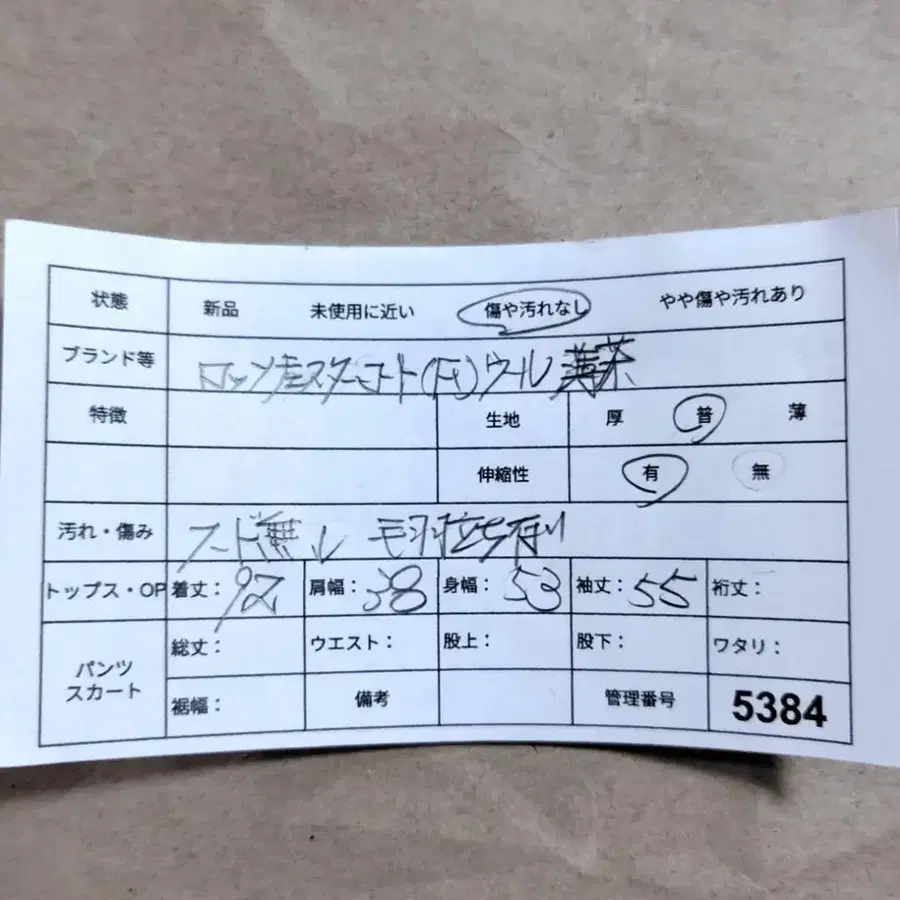 状態 新品 未使用に近い 傷や汚れなし やや傷や汚れあり
ブランド等 コート ウール 薄茶
特徴 生地 厚 普 薄
伸縮性 有 無
汚れ・傷み フード無し 毛羽立ち有り
トップス・OP 着丈:92 肩幅:38 身幅:53 袖丈:55 裄丈:
パンツ スカート 総丈: ウエスト: 股上: 股下: ワタリ:
裾幅: 備考 管理番号 5384